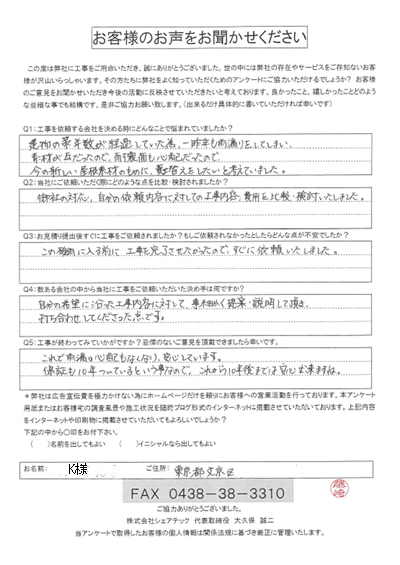 お客様のお声をお聞かせください
この度は弊社に工事をご用命いただき、誠にありがとうございました。世の中には弊社の存在やサービスをご存知ないお客
様が沢山いらっしゃいます。その方たちに弊社をよく知っていただくためのアンケートにご協力いただけるでしょうか？ お客様
のご意見をお聞かせいただき今後の活動に反映させていただきたいと考えております。良かったこと、嬉しかったことどのよう
な些細な事でも結構です。是非ご協力お願い致します。（出来るだけ具体的に書いていただければ幸いです）
Q1:工事を依頼する会社を決める時にどんなことで悩まれていましたか？
建物の築年数が経過していた為、一昨年も雨漏りをしてしまい、
素材が瓦だったので、耐震面も心配だったので、
今の新しい屋根素材のものに、葺き替えをしたいと考えていました。
Q2:当社にご依頼いただく際にどのような点を比較・検討されましたか？
御社の対応、自分の依頼内容に対しての工事内容、費用を比較・検討いたしました。
Q3:お見積り提出後すぐに工事をご依頼されましたか？もしご依頼されなかったとしたらどんな点が不安でしたか？
この梅雨に入る前に工事を完了させたかったので、すぐに依頼いたしました。
Q4:数ある会社の中から当社に工事をご依頼いただいた決め手は何ですか？
自分の希望に沿った工事内容に対して、事細かく提案・説明して頂き、
打ち合わせしてくださった点です。
Q5:工事が終わってみていかがですか？忌憚のないご意見を頂戴できましたら幸いです。
これで雨漏の心配もなくなり、安心しています。
保証も10年ついているという事なので、これから10年後までは安心出来ますね。
＊弊社は広告宣伝費を極力かけない為にホームページだけを頼りにお客様への営業活動を行っております。本アンケート
用紙またはお客様宅の調査風景や施工状況を随時ブログ形式のインターネットに掲載させていただいております。上記内容
をインターネットや印刷物に掲載させていただいてもよろしいでしょうか？
下記の中から〇印をお付下さい。
（　　）名前を出してもよい　（　　）イニシャルなら出してもよい
お名前: K様　ご住所: 東京都文京区
FAX 0438-38-3310
ご協力ありがとうございました。
株式会社シェアテック 代表取締役 大久保 誠二
当アンケートで取得したお客様の個人情報は関係法規に基づき厳正に管理いたします。